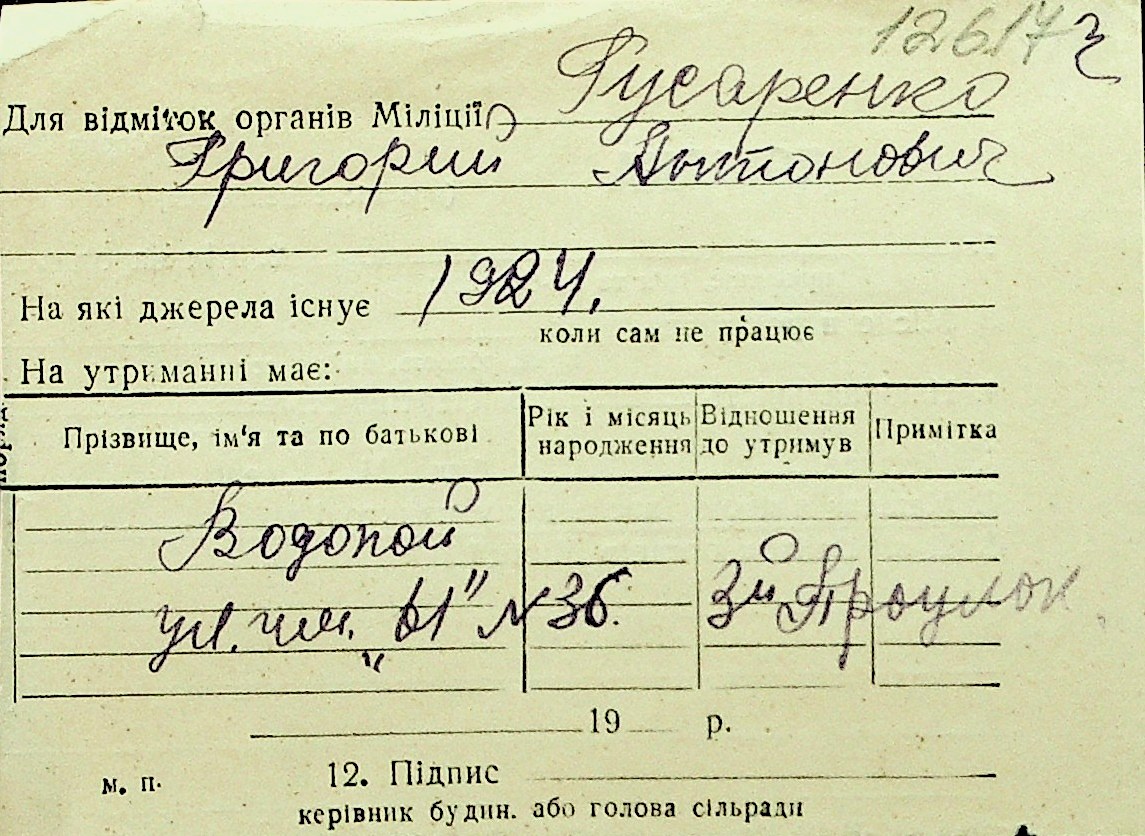 12617
Для відміток органів Міліції Гусаренко
Григорий Антонович
На які джерела існує 1924.
коли сам не працює
На утриманні має:
Прізвище, ім'я та по батькові
Рік і місяць народження
Відношення до утримув
Примітка
Водопой
ул. им. „61" № 36. 3й Проулок
19 р.
м. п. 12. Підпис
керівник будин. або голова сільради